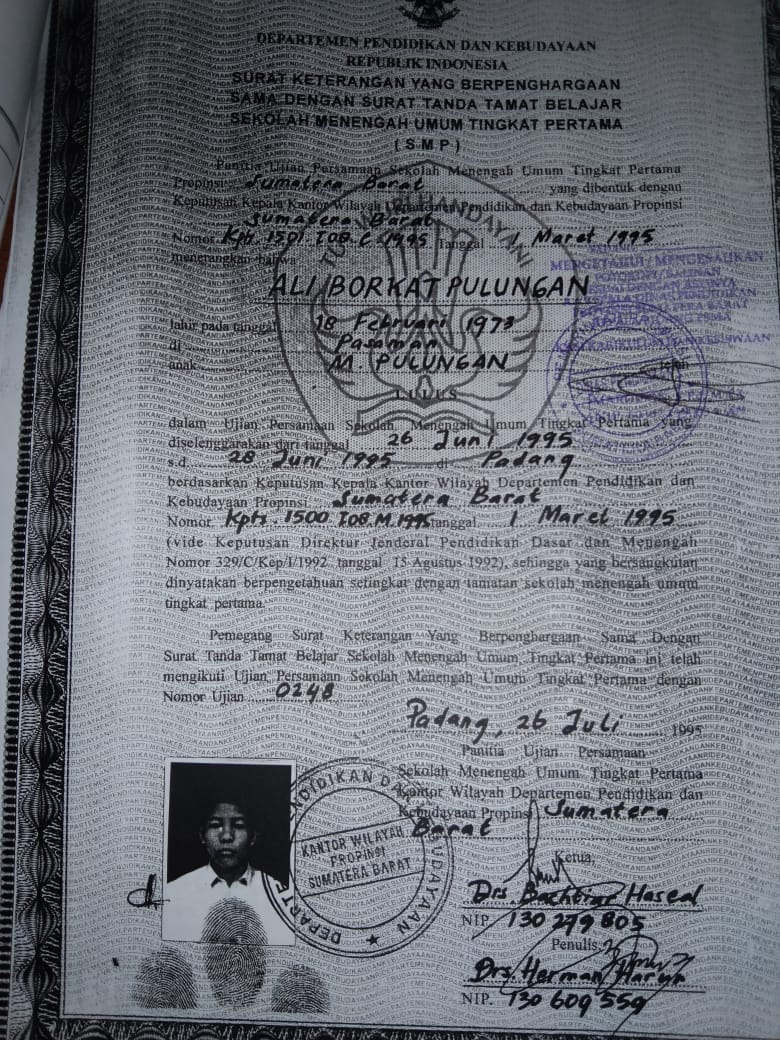 DEPARTEMEN PENDIDIKAN DAN KEBUDAYAAN
REPUBLIK INDONESIA
SURAT KETERANGAN YANG BERPENGHARGAAN
SAMA DENGAN SURAT TANDA TAMAT BELAJAR
SEKOLAH MENENGAH UMUM TINGKAT PERTAMA
( S M P )
Panitia Ujian Persamaan Sekolah Menengah Umum Tingkat Pertama
Propinsi Sumatera Barat yang dibentuk dengan
Keputusan Kepala Kantor Wilayah Departemen Pendidikan dan Kebudayaan Propinsi
Sumatera Barat
Nomor Kpts. 1501. I08. C. 1995 Tanggal 1 Maret 1995
menerangkan bahwa
ALI BORKAT PULUNGAN
lahir pada tanggal 18 Februari 1973
di Pasaman
anak M. PULUNGAN
LULUS
dalam Ujian Persamaan Sekolah Menengah Umum Tingkat Pertama yang
diselenggarakan dari tanggal 26 Juni 1995
s.d. 28 Juni 1995 di Padang
berdasarkan Keputusan Kepala Kantor Wilayah Departemen Pendidikan dan
Kebudayaan Propinsi Sumatera Barat
Nomor Kpts. 1500. I08. M. 1995 tanggal 1 Maret 1995
(vide Keputusan Direktur Jenderal Pendidikan Dasar dan Menengah
Nomor 329/C/Kep/I/1992 tanggal 15 Agustus 1992), sehingga yang bersangkutan
dinyatakan berpengetahuan setingkat dengan tamatan sekolah menengah umum
tingkat pertama.
Pemegang Surat Keterangan Yang Berpenghargaan Sama Dengan
Surat Tanda Tamat Belajar Sekolah Menengah Umum Tingkat Pertama ini telah
mengikuti Ujian Persamaan Sekolah Menengah Umum Tingkat Pertama dengan
Nomor Ujian 0248
Padang, 26 Juli 1995
Panitia Ujian Persamaan
Sekolah Menengah Umum Tingkat Pertama
Kantor Wilayah Departemen Pendidikan dan
Kebudayaan Propinsi Sumatera
Barat
Ketua,
Drs. Bachtiar
NIP 130 279 805
Penulis,
Drs. Herman
NIP. 130 609 559
KANTOR WILAYAH
PROPINSI
SUMATERA BARAT
TUT WURI HANDAYANI
MENGETAHUI / MENGESAHKAN